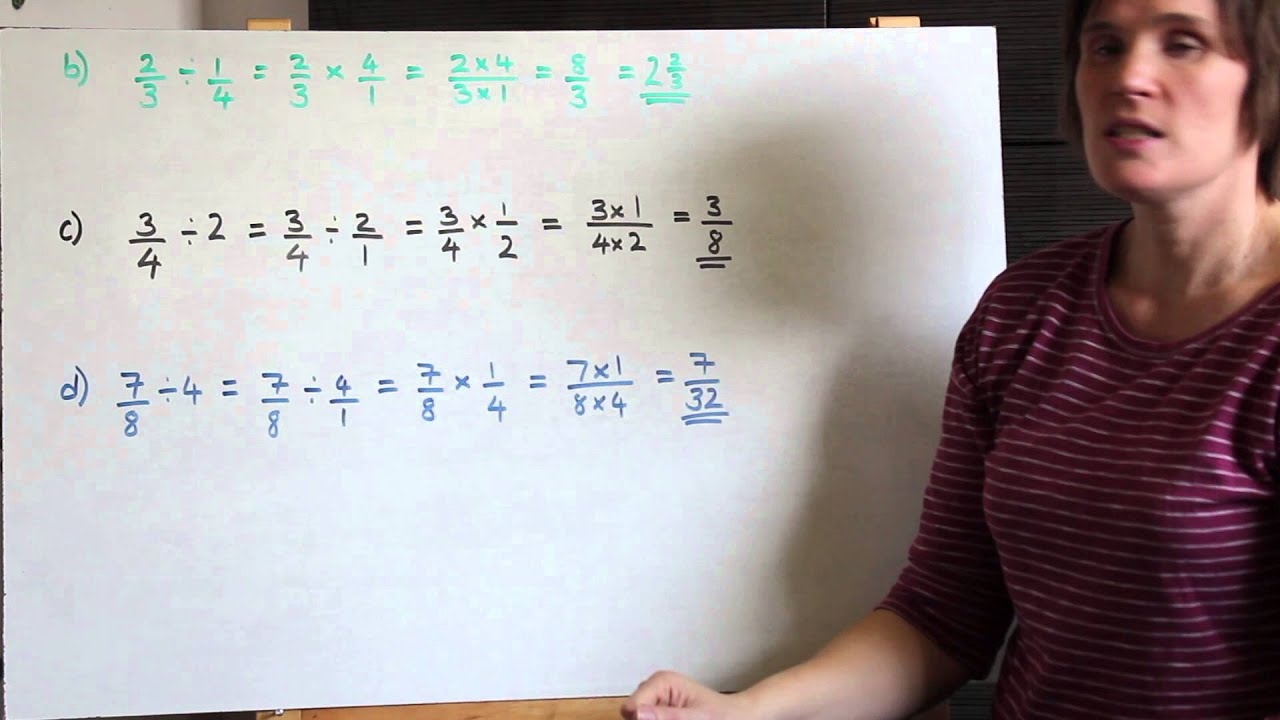 b) 2/3 ÷ 1/4 = 2/3 × 4/1 = 2×4/3×1 = 8/3 = 2 2/3
c) 3/4 ÷ 2 = 3/4 ÷ 2/1 = 3/4 × 1/2 = 3×1/4×2 = 3/8
d) 7/8 ÷ 4 = 7/8 ÷ 4/1 = 7/8 × 1/4 = 7×1/8×4 = 7/32